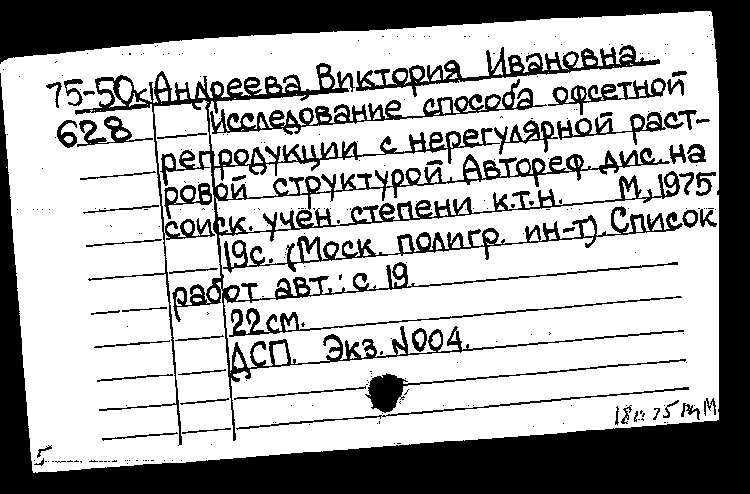 75-50к Андреева, Виктория Ивановна.
628 Исследование способа офсетной
репродукции с нерегулярной раст-
ровой структурой. Автореф. дис. на
соиск. учен. степени к.т.н. М., 1975.
19с. (Моск. полигр. ин-т). Список
работ авт.: с. 19.
22см.
ДСП. Экз. №004.
5